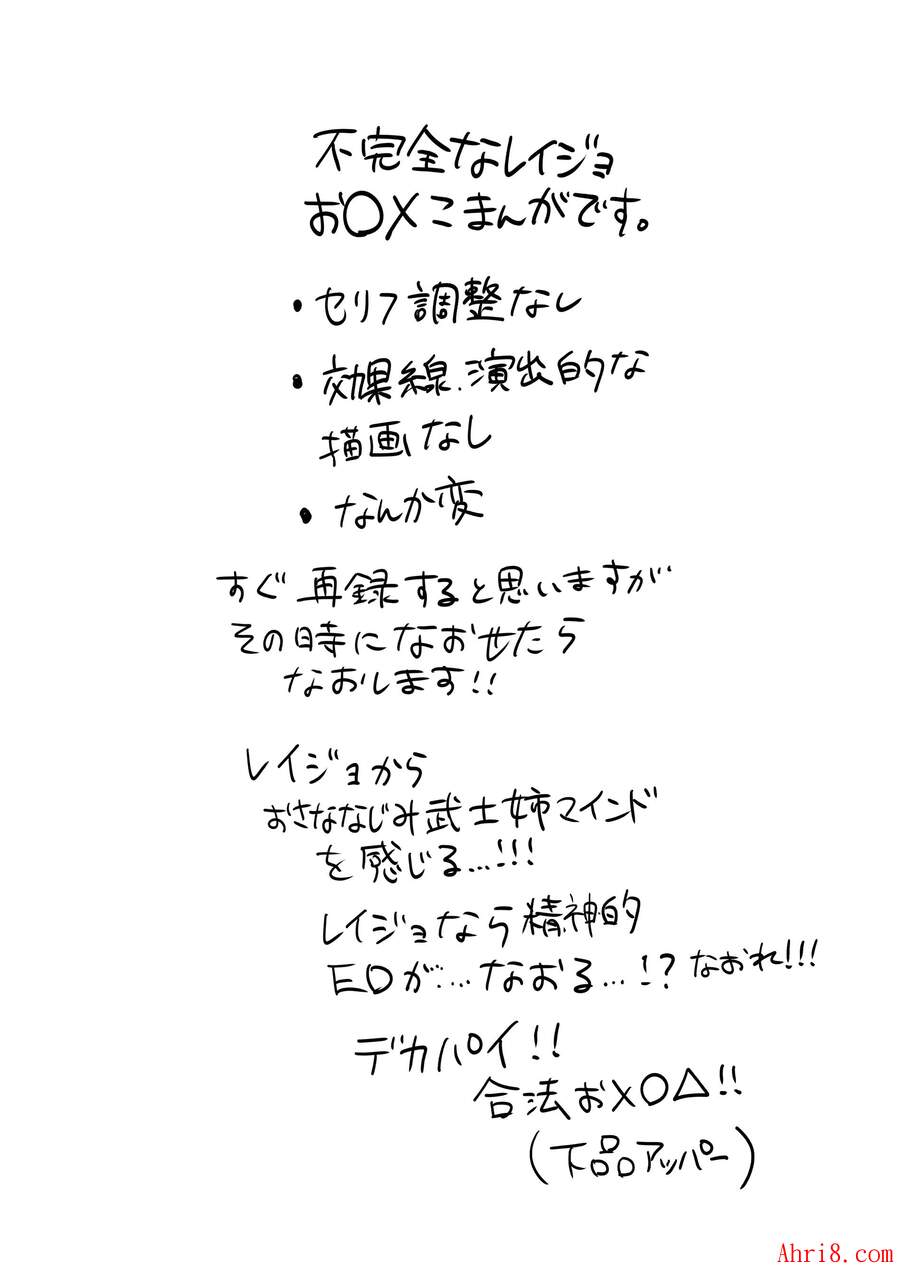 不完全なレイジョ
お〇×こまんがです。
・セリフ調整なし
・効果線、演出的な
描画なし
・なんか変
すぐ再録すると思いますが
その時になおせたら
なおします!!
レイジョから
おさななじみ武士姉マインド
を感じる…!!!
レイジョなら精神的
EDが…なおる…!?なおれ!!!
デカパイ!!
合法お×〇△!!
(下品アッパー)
Ahri8.com